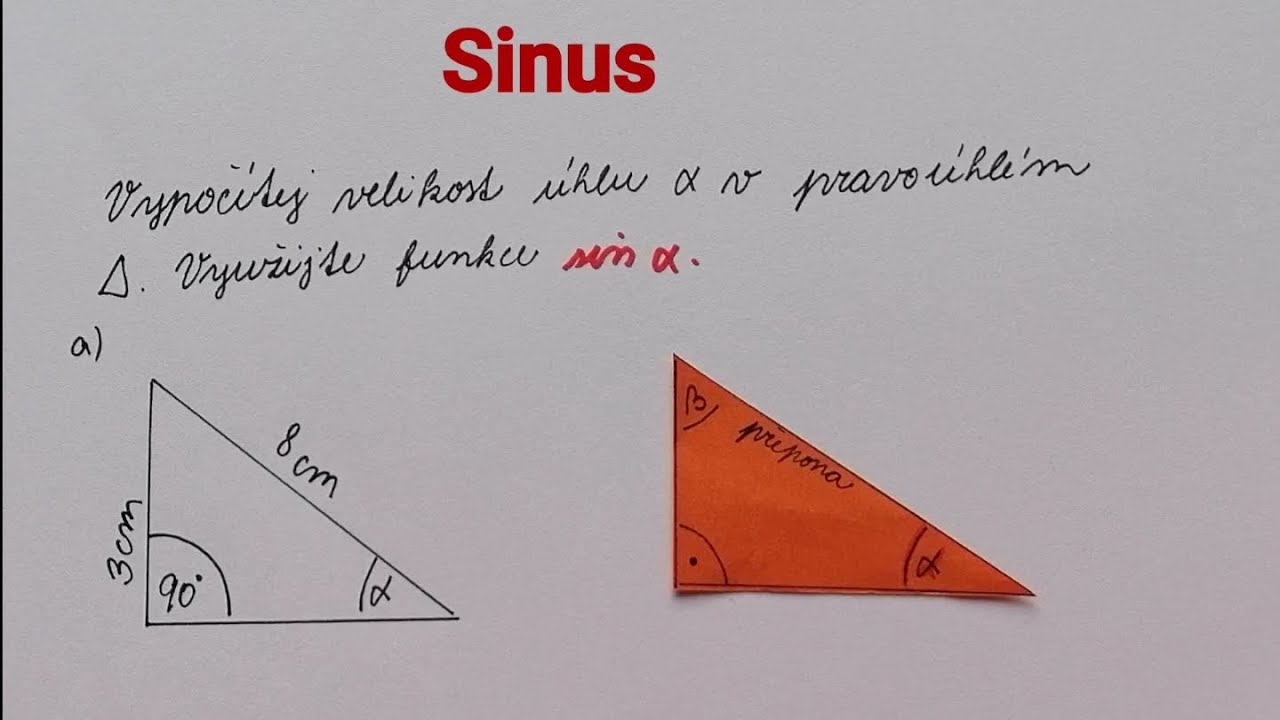 Sinus
Vypočítej velikost úhlu α v pravoúhlém
Δ. Využijte funkce sin α.
a)
8 cm
3 cm
90°
α
β
přepona
α